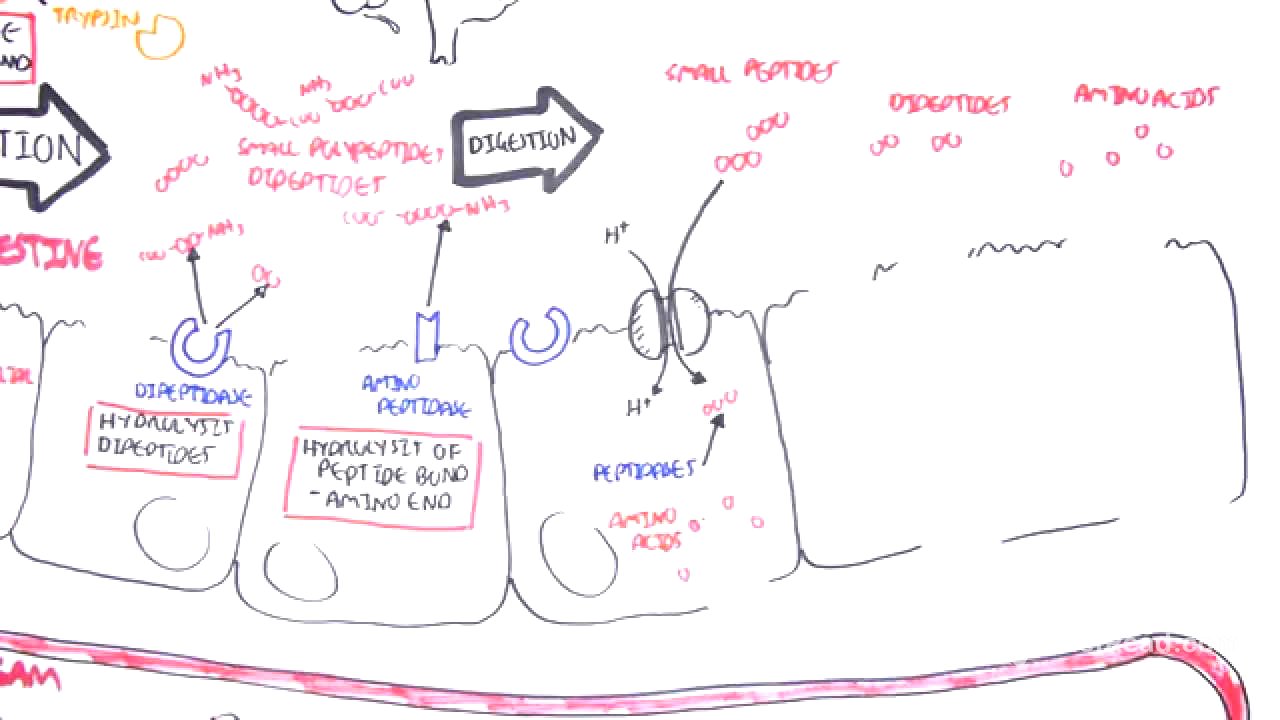 TRYPSIN
E
ND
TION
NH3
NH3
COO
COO
SMALL POLYPEPTIDES
DIPEPTIDES
COO
NH3
COO
NH3
DIGESTION
SMALL PEPTIDES
DIPEPTIDES
AMINO ACIDS
ESTINE
H+
DIPEPTIDASE
HYDROLYSIS
DIPEPTIDES
AMINO
PEPTIDASE
HYDROLYSIS OF
PEPTIDE BOND
- AMINO END
H+
PEPTIDASES
AMINO
ACIDS
EAM